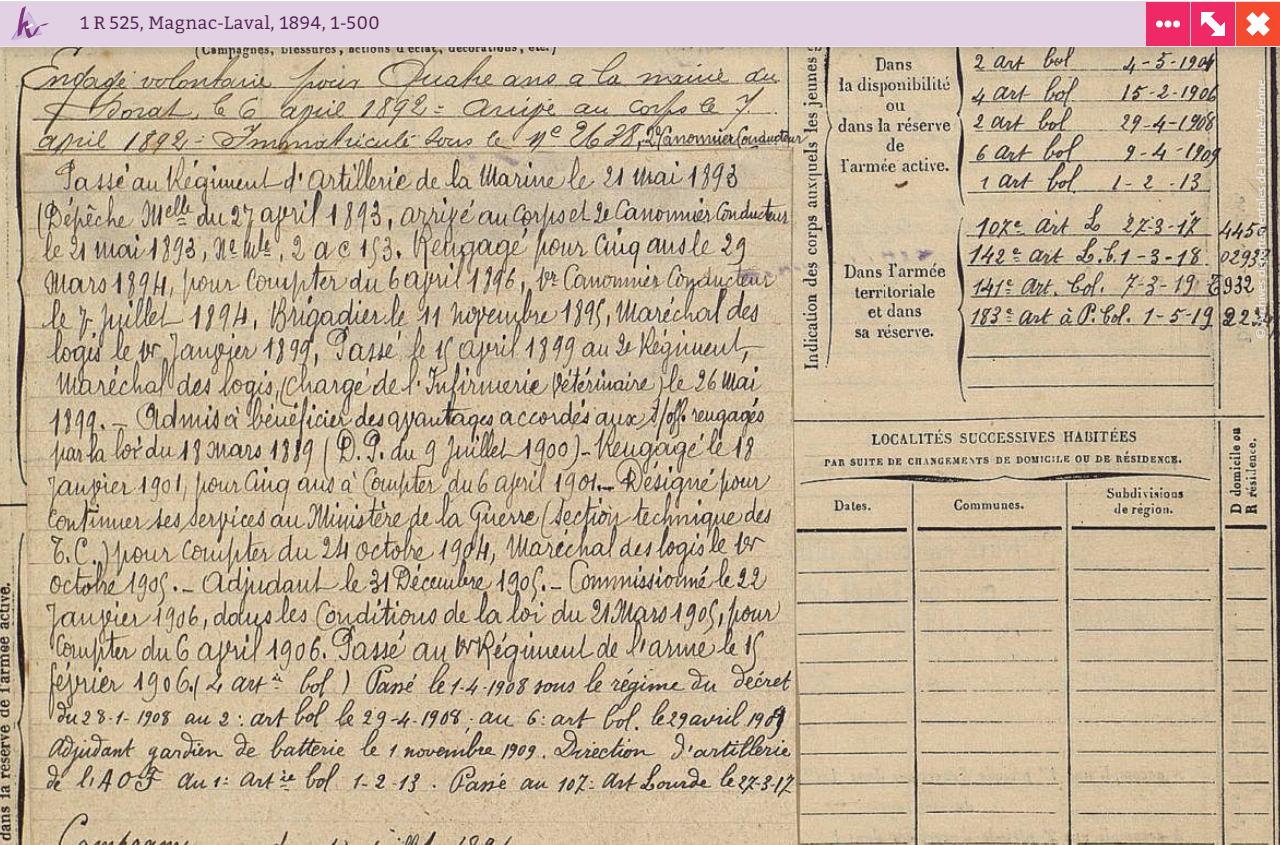 1 R 525, Magnac-Laval, 1894, 1-500
(Campagnes, blessures, actions d'éclat, décorations, etc.)
Engagé volontaire pour Quatre ans a la mairie du
Dorat, le 6 april 1892 = arrivé au corps le 7
april 1892 = Immatriculé sous le No 2628, 2e Canonnier Conducteur
Passé au Régiment d'artillerie de la Marine le 21 mai 1893
(Dépêche Melle du 27 april 1893, arrivé au Corps et 2e Canonnier Conducteur
le 21 mai 1893, No mle, 2 a c 153. Rengagé pour Cinq ans le 29
Mars 1894, pour Compter du 6 april 1896, 1er Canonnier Conducteur
le 7 juillet 1894, Brigadier le 11 novembre 1895, Maréchal des
logis le 1er Janvier 1899, Passé le 15 april 1899 au 2e Régiment,
Maréchal des logis, (chargé de l'Infirmerie Vétérinaire) le 26 Mai
1899. — Admis à bénéficier des avantages accordés aux s/off. rengagés
par la loi du 18 mars 1889 (D. P. du 9 Juillet 1900) - Rengagé le 18
Janvier 1901, pour Cinq ans à Compter du 6 april 1901. — Désigné pour
Continuer ses services au Ministère de la Guerre (section technique des
T. C.) pour Compter du 24 octobre 1904, Maréchal des logis le 1er
octobre 1905. — Adjudant le 31 Décembre 1905. — Commissionné le 22
Janvier 1906, dans les Conditions de la loi du 21 Mars 1905, pour
Compter du 6 april 1906. Passé au 1er Régiment de l'arme le 15
février 1906. (4 art ie bol) Passé le 1-4-1908 sous le régime du décret
du 28-1-1908 au 2: art bol le 29-4-1908 au 6: art bol. le 29 avril 1909
Adjudant gardien de batterie le 1 novembre 1909. Direction d'artillerie
de l'AOF au 1: art ie bol 1-2-13. Passé au 107: art Lourde le 27-3-17
Campagnes
dans la réserve de l'armée active.
Indication des corps auxquels les jeunes
Dans
la disponibilité
ou
dans la réserve
de
l'armée active.
2 art bol 4-5-1904
4 art bol 15-2-1906
2 art bol 29-4-1908
6 Art bol 9-4-1909
1 art bol 1-2-13
Dans l'armée
territoriale
et dans
sa réserve.
107e art L 27-3-17 4450
142e art L. b. 1-3-18. 02933
141e Art. bol. 7-3-19 932
183e art à P. bol. 1-5-19
LOCALITÉS SUCCESSIVES HABITÉES
PAR SUITE DE CHANGEMENTS DE DOMICILE OU DE RÉSIDENCE.
Dates.
Communes.
Subdivisions
de région.
D domicile ou
R résidence.